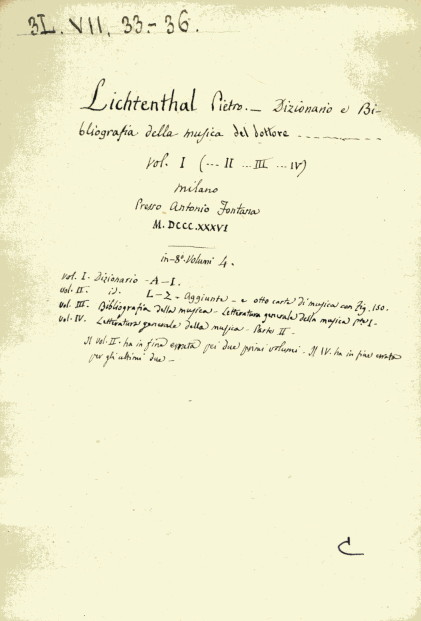 3L. VII, 33.-36.
Lichtenthal Pietro. - Dizionario e Bi-
bliografia della musica del dottore
vol. I (... II ... III ... IV)
milano
Presso Antonio Fontana
M. DCCC.XXXVI
in-8º. Volumi 4.
vol. I. Dizionario - A-I.
vol. II. id. L-Z - Aggiunte - e otto carte di musica con Fig. 150.
vol. III. Bibliografia della musica - Letteratura generale della musica pte I-
vol. IV. Letteratura generale della musica - Parte II -
Il vol. II. ha in fine errata pei due primi volumi. Il IV. ha in fine errata
per gli ultimi due -
C